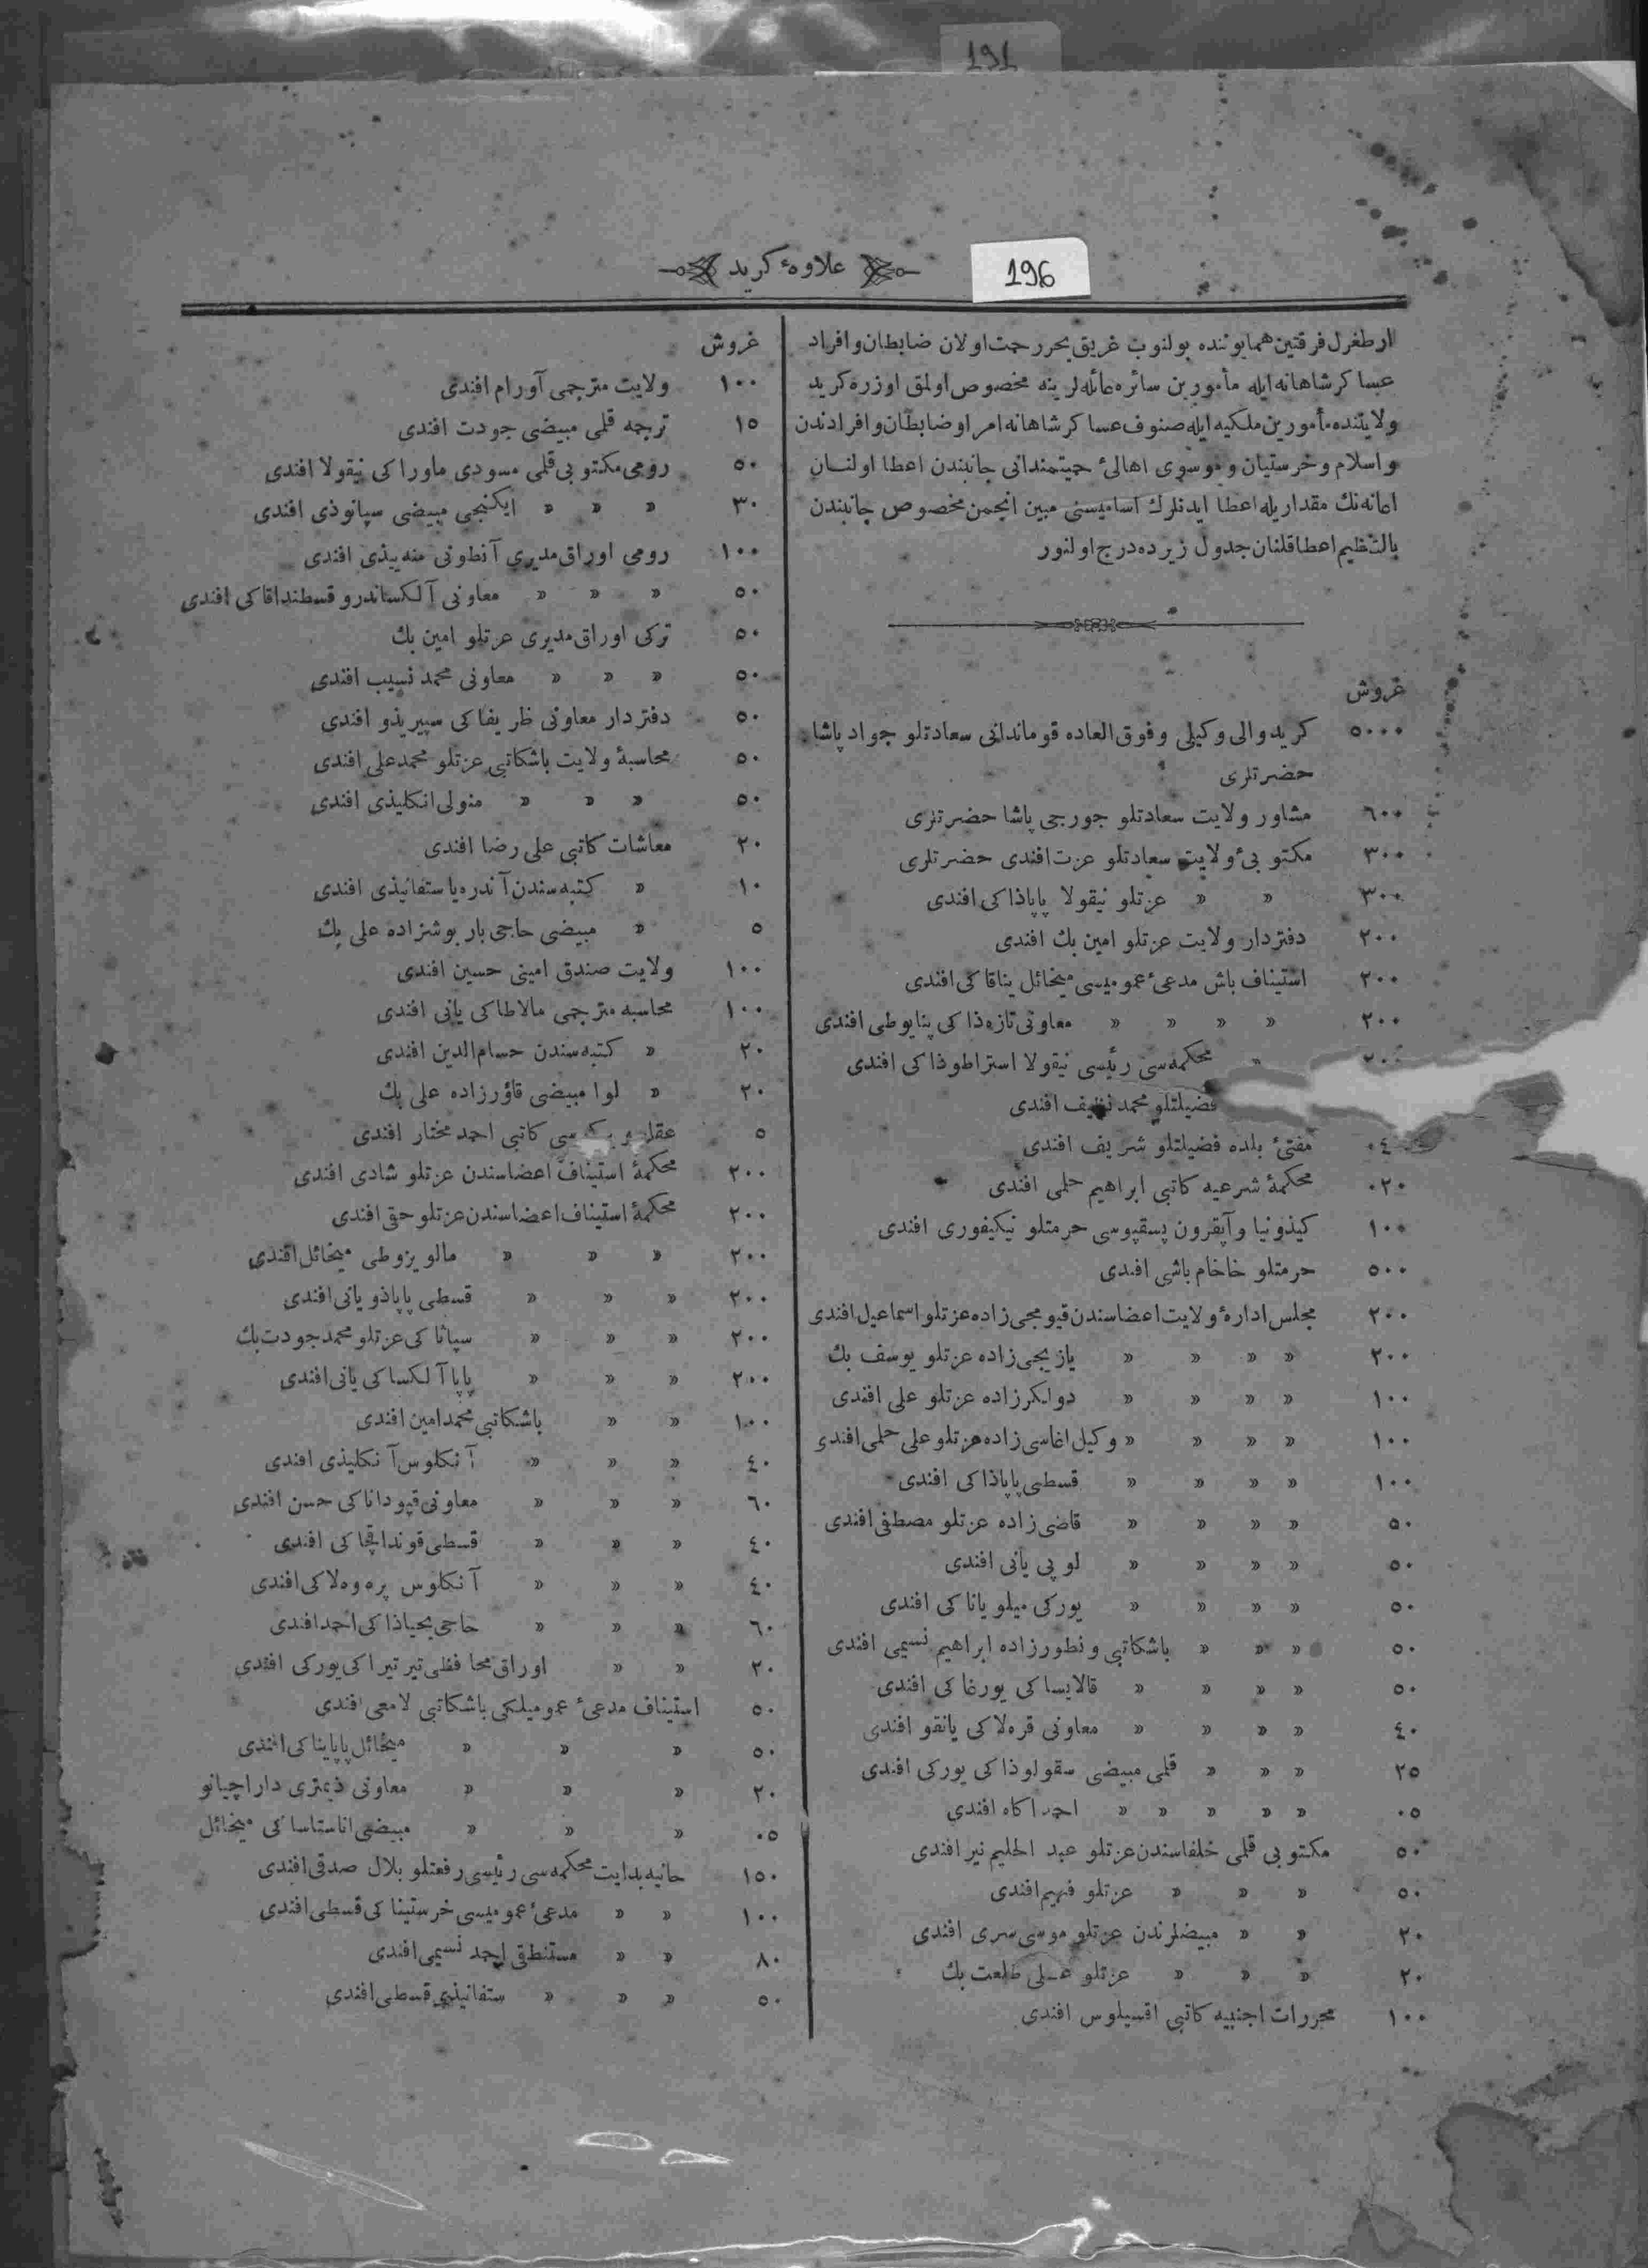 191
196
علاوۀ كريد
ارطغرل فرقتين همايوننده بولنوب غريق بحر رحمت اولان ضابطان و افراد
عساكر شاهانه ايله مأمورين سائره عائله لرينه مخصوص اولمق اوزره كريد
ولايتنده مأمورين ملكيه ايله صنوف عساكر شاهانه امرا و ضابطان و افرادندن
و اسلام و خرستيان و موسوى اهالئ حميتمندانى جانبندن اعطا اولنان
اعانه نك مقداريله اعطا ايدنلرك اساميسنى مبين انجمن مخصوص جانبندن
بالتنظيم اعطا قلنان جدول زيرده درج اولنور
غروش
٥٠٠٠ كريد والى وكيلى و فوق العاده قوماندانى سعادتلو جواد پاشا
حضرتلرى
٦٠٠ مشاور ولايت سعادتلو جورجى پاشا حضرتلرى
٣٠٠ مكتوبئ ولايت سعادتلو عزت افندى حضرتلرى
٣٠٠ » » عزتلو نيقولا پاپاذاكى افندى
٢٠٠ دفتردار ولايت عزتلو امين بك افندى
٢٠٠ استيناف باش مدعئ عموميسى ميخائل يناقاكى افندى
٢٠٠ » » » » معاونى تازه ذاكى پنايوطى افندى
٢٠٠ » محكمه سى رئيسى نيقولا استراطوذاكى افندى
فضيلتلو محمد نظيف افندى
٤٠ مفتئ بلده فضيلتلو شريف افندى
٠٢٠ محكمۀ شرعيه كاتبى ابراهيم حلمى افندى
١٠٠ كيذونيا و آپقرون پسقپوسى حرمتلو نيكيفورى افندى
٥٠٠ حرمتلو خاخام باشى افندى
٢٠٠ مجلس ادارۀ ولايت اعضاسندن قيومجى زاده عزتلو اسماعيل افندى
٢٠٠ » » » » يازيجى زاده عزتلو يوسف بك
١٠٠ » » » » دولكر زاده عزتلو على افندى
١٠٠ » » » » وكيل اغاسى زاده عزتلو على حلمى افندى
١٠٠ » » » » قسطى پاپاذاكى افندى
٥٠ » » » » قاضى زاده عزتلو مصطفى افندى
٥٠ » » » » لوپى يانى افندى
٥٠ » » » » يوركى ميلو ياناكى افندى
٥٠ » » » باشكاتبى ونطور زاده ابراهيم نسيمى افندى
٥٠ » » » » قالايساكى يورغاكى افندى
٤٠ » » » » معاونى قره لاكى يانقو افندى
٢٥ » » » قلمى مبيضى سقولوذاكى يوركى افندى
٠٥ » » » » » احمد اكاه افندى
٥٠ مكتوبى قلمى خلفاسندن عزتلو عبد الحليم نير افندى
٥٠ » » » عزتلو فهيم افندى
٢٠ » » مبيضلرندن عزتلو موسى سرى افندى
٢٠ » » » عزتلو على طلعت بك
١٠٠ محررات اجنبيه كاتبى اقسيلوس افندى
غروش
١٠٠ ولايت مترجمى آورام افندى
١٥ ترجمه قلمى مبيضى جودت افندى
٥٠ رومى مكتوبى قلمى مسودى ماوراكى نيقولا افندى
٣٠ » » » ايكنجى مبيضى سپانوذى افندى
١٠٠ رومى اوراق مديرى آنطونى منه ييذى افندى
٥٠ » » » معاونى آلكساندرو قسطنداقاكى افندى
٥٠ تركى اوراق مديرى عزتلو امين بك
٥٠ » » » معاونى محمد نسيب افندى
٥٠ دفتردار معاونى ظريفاكى سپيريذو افندى
٥٠ محاسبۀ ولايت باشكاتبى عزتلو محمد على افندى
٥٠ » » » منولى انكليذى افندى
٢٠ معاشات كاتبى على رضا افندى
١٠ » كتبه سندن آندره يا ستفانيذى افندى
٥ » مبيضى حاجى بار بوشزاده على بك
١٠٠ ولايت صندق امينى حسين افندى
١٠٠ محاسبه مترجمى مالاطاكى يانى افندى
٢٠ » كتبه سندن حسام الدين افندى
٢٠ » لوا مبيضى قاؤرزاده على بك
٥ كاتبى احمد مختار افندى
٢٠٠ محكمۀ استيناف اعضاسندن عزتلو شادى افندى
٢٠٠ محكمۀ استيناف اعضاسندن عزتلو حقى افندى
٢٠٠ » » » مالويزوطى ميخائل افندى
٢٠٠ » » » قسطى پاپاذو يانى افندى
٢٠٠ » » » سپاثاكى عزتلو محمد جودت بك
٢٠٠ » » » پاپا آلكساكى يانى افندى
١٠٠ » » باشكاتبى محمد امين افندى
٤٠ » » » آنكلوس آنكليذى افندى
٦٠ » » » معاونى قپوداناكى حسن افندى
٤٠ » » » قسطى قونداقچاكى افندى
٤٠ » » » آنكلوس پره وه لاكى افندى
٦٠ » » » حاجى يحياذاكى احمد افندى
٢٠ » » اوراق محافظى تيرتيراكى يوركى افندى
٥٠ استيناف مدعئ عموميلكى باشكاتبى لامعى افندى
٥٠ » » » ميخائل پاپايناكى افندى
٢٠ » » » معاونى ذيمترى داراچيانو
٠٥ » » » مبيضى اناستاساكى ميخائل
١٥٠ حانيه بدايت محكمه سى رئيسى رفعتلو بلال صدقى افندى
١٠٠ » » مدعئ عموميسى خرستيناكى قسطى افندى
٨٠ » » مستنطقى احمد نسيمى افندى
٥٠ » » » ستفانيذى قسطى افندى